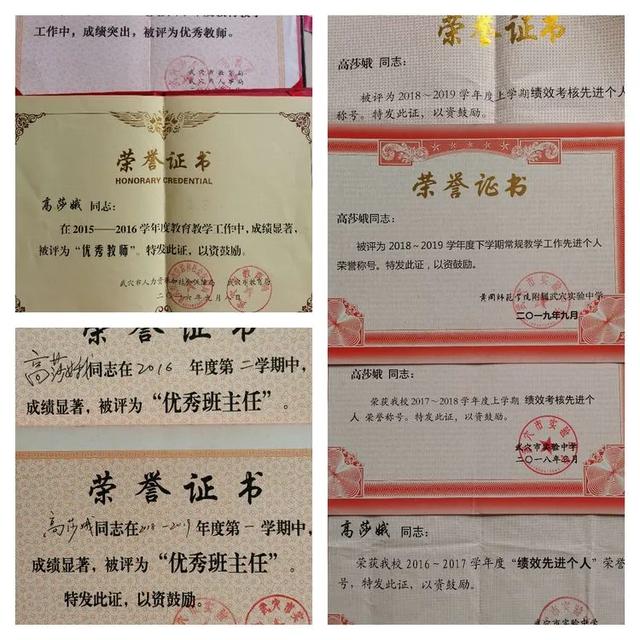 工作中，成绩突出，被评为优秀教师。
武穴市教育局
武穴市人事局
荣誉证书
HONORARY CREDENTIAL
高莎娥 同志：
在2015——2016学年度教育教学工作中，成绩显著，
被评为“优秀教师”。特发此证，以资鼓励。
武穴市人力资源和社会保障局 武穴市教育局
二〇一六年九月八日
荣誉证书
高莎娥同志在2016 年度第二学期中，
成绩显著，被评为“优秀班主任”。
荣誉证书
高莎娥同志在2018-2019年度第一学期中，
成绩显著，被评为“优秀班主任”。
特发此证，以资鼓励。
武穴市实
荣誉证书
高莎娥 同志：
被评为2018～2019学年度上学期绩效考核先进个人
称号。特发此证，以资鼓励。
荣誉证书
高莎娥同志：
被评为2018～2019学年度下学期常规教学工作先进个人
荣誉称号。特发此证，以资鼓励。
黄冈师范学院附属武穴实验中学
二〇一九年九月
高莎娥 同志：
荣获我校2017～2018学年度上学期 绩效考核先进个
人 荣誉称号。特发此证，以资鼓励。
武穴市实验中学
二〇一八年三月
高莎娥 同志：
荣获我校2016～2017学年度“绩效先进个人”荣誉
号，特发此证，以资鼓励。
武穴市实验中学